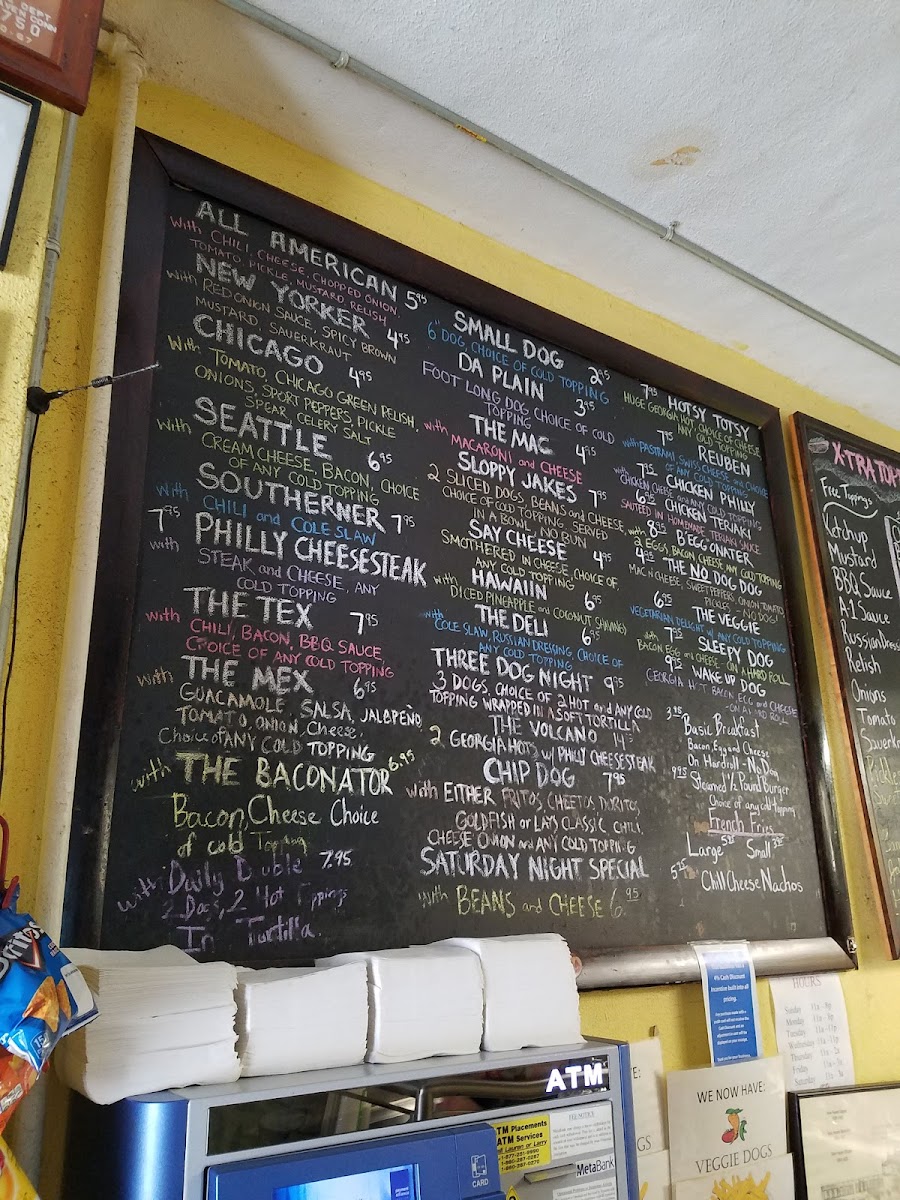 DEPT
CONN
750
ALL AMERICAN 5.95
with CHILI, CHEESE, CHOPPED ONION,
TOMATO, PICKLE, MUSTARD, RELISH
NEW YORKER 4.95
with RED ONION SAUCE, SPICY BROWN
MUSTARD, SAUERKRAUT
CHICAGO 4.95
With TOMATO, CHICAGO GREEN RELISH,
ONIONS, SPORT PEPPERS, PICKLE
SPEAR, CELERY SALT
SEATTLE 6.95
with CREAM CHEESE, BACON, CHOICE
OF ANY COLD TOPPING
SOUTHERNER 7.95
with CHILI and COLE SLAW
7.95 PHILLY CHEESESTEAK
with STEAK and CHEESE, ANY
COLD TOPPING
THE TEX 7.95
with CHILI, BACON, BBQ SAUCE,
CHOICE OF ANY COLD TOPPING
THE MEX 6.95
with GUACAMOLE, SALSA, JALAPEÑO,
TOMATO, ONION, Cheese,
Choice of ANY COLD TOPPING
THE BACONATOR 6.95
with Bacon Cheese Choice
of cold Topping
Daily Duble 7.95
with 2 Dogs, 2 Hot Toppings
In Tortilla.
SMALL DOG 2.95
6" DOG, CHOICE OF COLD TOPPING
DA PLAIN 3.95
FOOT LONG DOG CHOICE OF COLD
TOPPING
THE MAC 4.95
with MACARONI and CHEESE
SLOPPY JAKES 7.95
2 SLICED DOGS, BEANS and CHEESE,
CHOICE OF COLD TOPPING, SERVED
IN A BOWL, NO BUN
SAY CHEESE 4.95
SMOTHERED IN CHEESE, CHOICE OF
ANY COLD TOPPING
HAWAIIN 6.95
with DICED PINEAPPLE and COCONUT SHAVING)
THE DELI 6.95
with COLE SLAW, RUSSIAN DRESSING, CHOICE OF
ANY COLD TOPPING
THREE DOG NIGHT 9.95
3 DOGS, CHOICE OF 2 HOT and ANY COLD
TOPPING WRAPPED IN A SOFT TORTILLA
THE VOLCANO
2 GEORGIA HOTS w/ PHILLY CHEESESTEAK
CHIP DOG 7.95
with EITHER FRITOS, CHEETOS, DORITOS,
GOLDFISH or LAYS CLASSIC CHILI,
CHEESE, ONION and ANY COLD TOPPING
SATURDAY NIGHT SPECIAL
with BEANS and CHEESE 6.95
7.95 HOTSY TOTSY
HUGE GEORGIA HOT, CHOICE of CHEESE
ANY COLD TOPPING
7.95 REUBEN
with PASTRAMI, SWISS CHEESE and CHOICE
of ANY COLD TOPPING
7.95 CHICKEN PHILLY
with CHICKEN CHEESE and ANY COLD TOPPING
6.95 CHICKEN TERIAKI
SAUTEED IN HOMEMADE TERIAKI SAUCE
8.95 B'EGGONATER
with 2 EGGS, BACON, CHEESE ANY COLD TOPPING
4.95 THE NO DOG DOG
MAC N CHEESE, SWEET PEPPERS, ONION TOMATO
PICKLES - NO DOG!
6.95 THE VEGGIE
VEGETARIAN DELIGHT w/ ANY COLD TOPPING
7.95 SLEEPY DOG
with BACON, EGG and CHEESE - ON A HARD ROLL
9.95 WAKE UP DOG
GEORGIA HOT, BACON, EGG and CHEESE
- ON A HARD ROLL
3.95 Basic Breakfast
Bacon, Egg and Cheese
On Hardroll - No Dog
9.95 Steamed ½ Pound Burger
Choice of any cold topping
French Fries
Large 5.95 Small
5.95 Chili Cheese Nachos
Free Toppings
Ketchup
Mustard
BBQ Sauce
A-1 Sauce
Relish
Onions
Tomato
Doritos
4% Cash Discount
incentive built into all
pricing.
HOURS
Sunday
Monday
Tuesday
Wednesday
Thursday
Friday
Saturday
WE NOW HAVE:
VEGGIE DOGS
ATM
ATM Placements
ATM Services
MetaBank
CARD